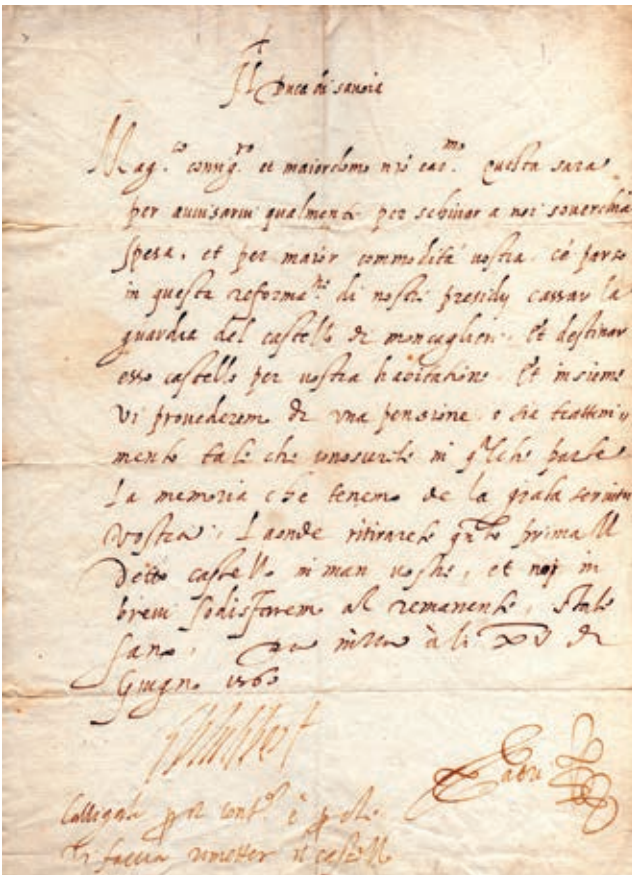 Il Duca di Savoia
Mag.co consig.ro et maiordomo nro car.mo Questa sara
per avvisarvi qualmente per schivar a noi soverchia
spesa, et per maior commodità vostra cè parso
in questa reforma.ne di nostri presidij cassar la
guardia del castello di moncaglier. Et destinar
esso castello per vostra habitatione. Et insieme
vi provederemo di una pensione o sia tratteni-
mento tale che conoscerete in qlche parte
La memoria che tenemo de la grata servitu
vostra, Laonde ritirarete qnto prima il
detto castello in man vostre, et noi in
brevi sodisfarem al remanente, state
sano, Da à li XV di
Giugno 1560
Fabri